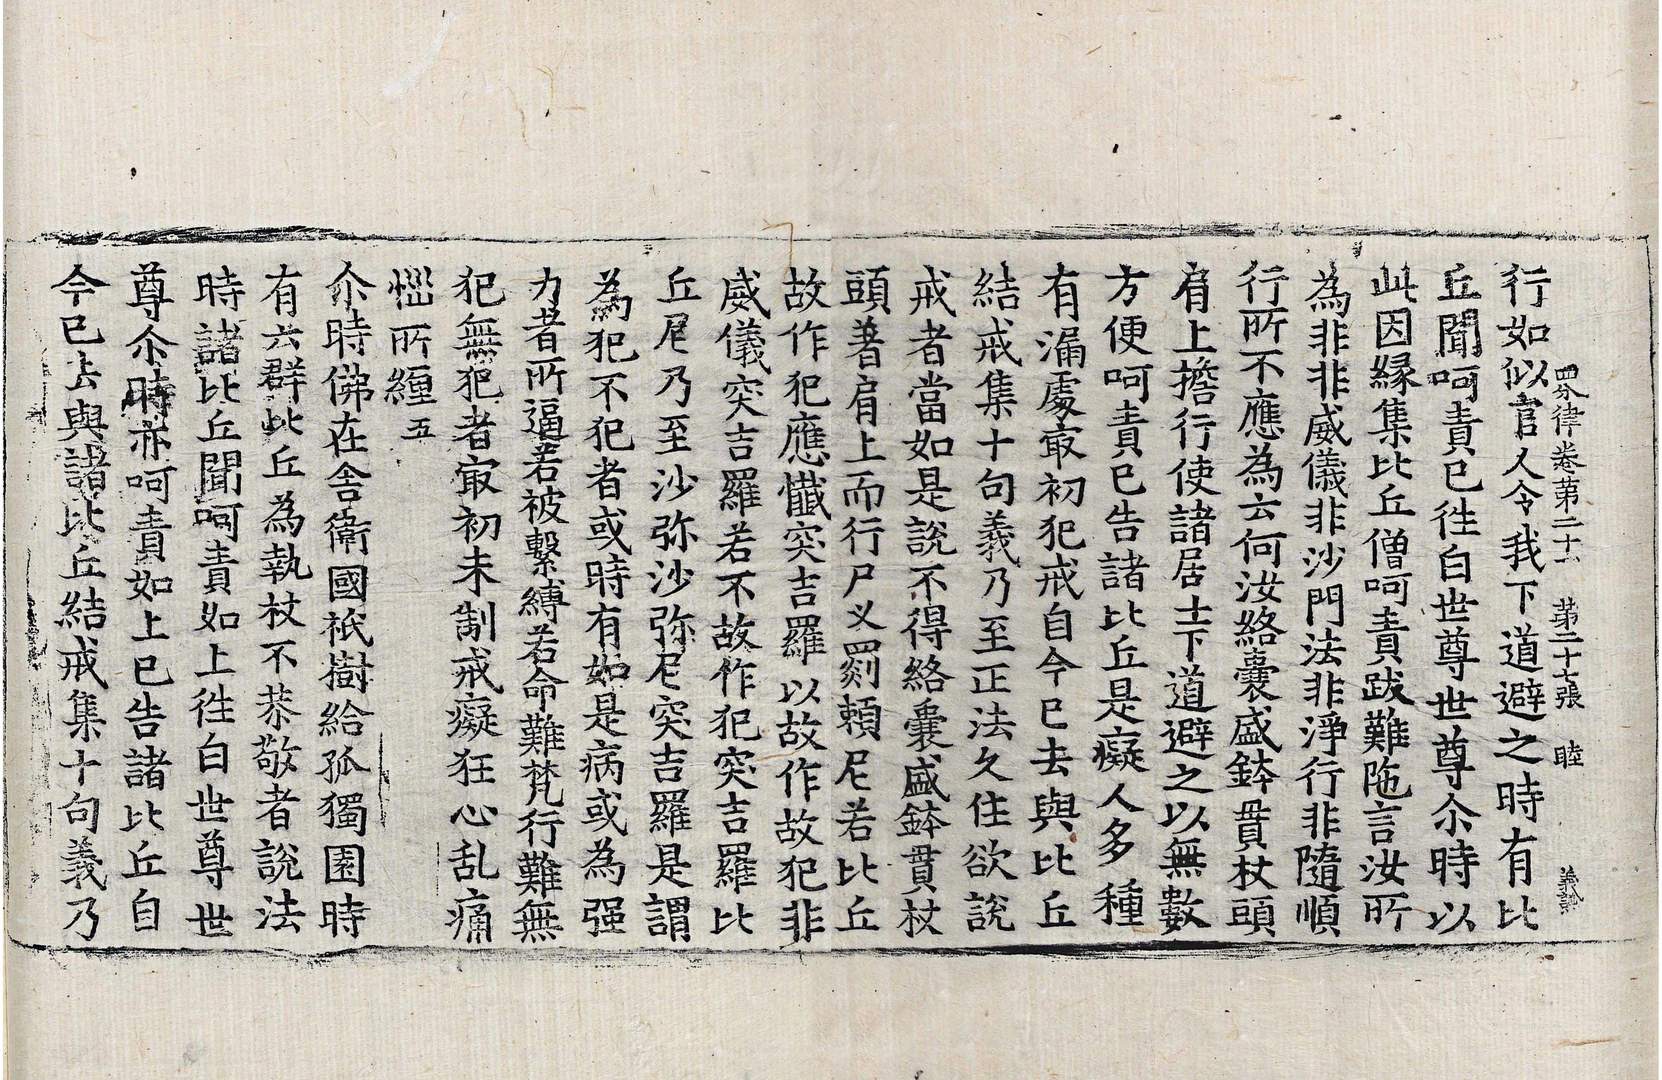 四分律卷第二十一 第二十七張 睦 義詮
行如似官人令我下道避之時有比
丘聞呵責已徃白世尊世尊尒時以
此因縁集比丘僧呵責跋難陁言汝所
為非非威儀非沙門法非淨行非隨順
行所不應為云何汝絡囊盛鉢貫杖頭
肩上擔行使諸居士下道避之以無數
方便呵責已告諸比丘是癡人多種
有漏處㝡初犯戒自今已去與比丘
結戒集十句義乃至正法久住欲說
戒者當如是說不得絡囊盛鉢貫杖
頭著肩上而行尸叉罽賴尼若比丘
故作犯應懺突吉羅以故作故犯非
威儀突吉羅若不故作犯突吉羅比
丘尼乃至沙弥沙弥尼突吉羅是謂
為犯不犯者或時有如是病或為强
力者所逼若被繫縛若命難梵行難無
犯無犯者㝡初未制戒癡狂心乱痛
惱所纏五
尒時佛在舎衛國祇樹給孤獨園時
有六群比丘為執杖不恭敬者說法
時諸比丘聞呵責如上徃白世尊世
尊尒時亦呵責如上已告諸比丘自
今已去與諸比丘結戒集十句義乃